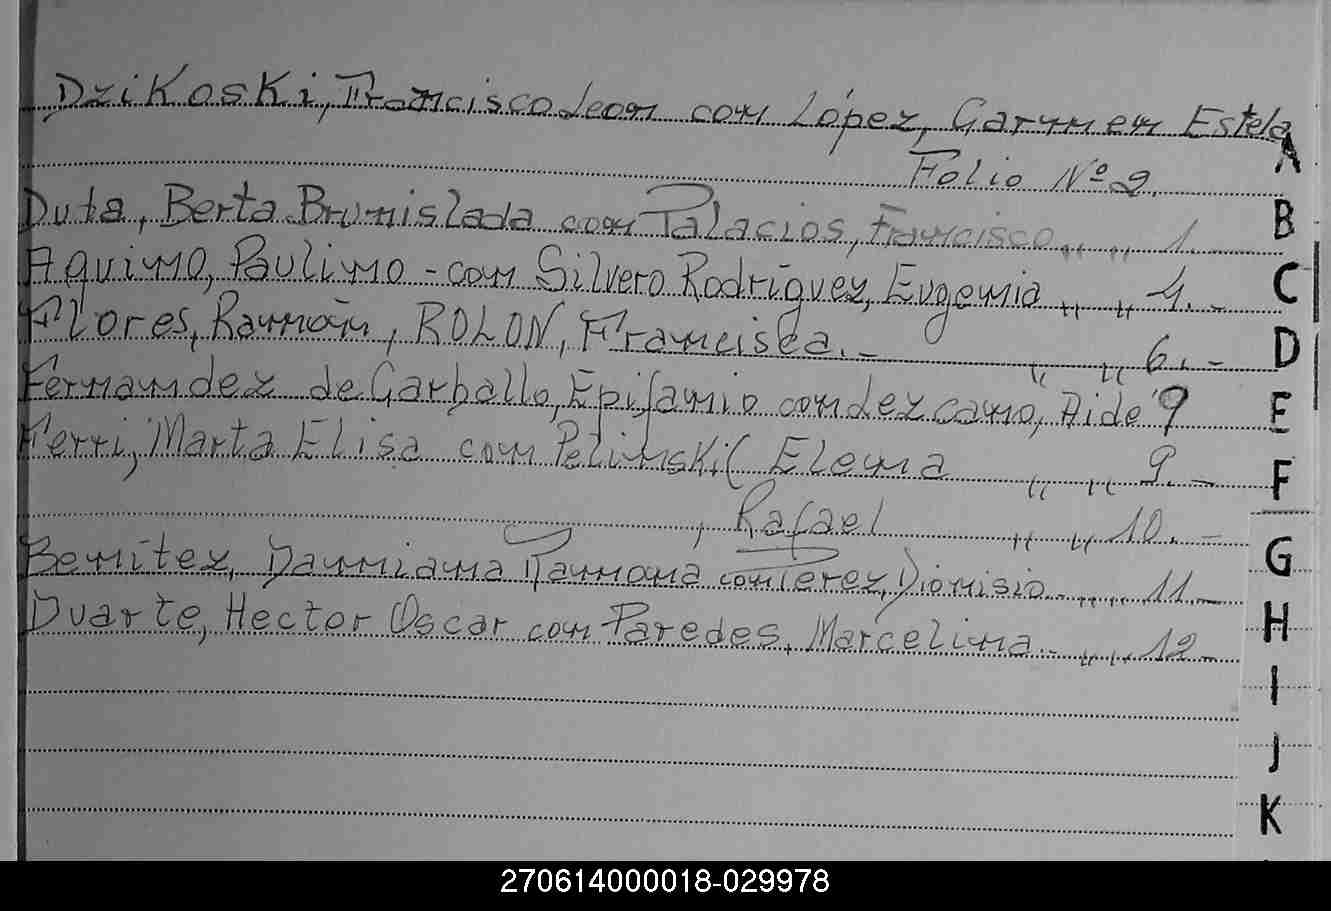 Dzikoski, Francisco Leon con López, Carmen Estela
Folio Nº 2.
Duta, Berta Brunislada con Palacios, Francisco „ „ 1.-
Aquino, Paulino - con Silvero Rodríguez, Eugenia „ „ 4.-
Flores, Ramón, ROLON, Francisca.- „ „ 6.-
Fernandez de Carballo, Epifanio con Lezcano, Aide 9
Ferri, Marta Elisa con Pelinski( Elena „ „ 9.-
, Rafael „ „ 10.-
Benítez, Damiana Ramona con Perez, Dionisio.- „ „ 11.-
Duarte, Hector Oscar con Paredes, Marcelina.- „ „ 12-
A
B
C
D
E
F
G
H
I
J
K
270614000018-029978